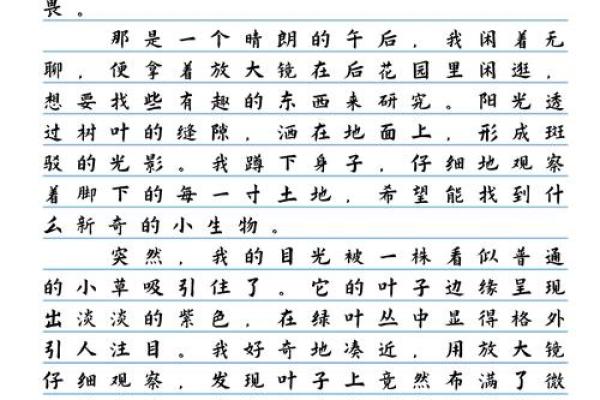 畏。
那是一个晴朗的午后，我闲着无
聊，便拿着放大镜在后花园里闲逛，
想要找些有趣的东西来研究。阳光透
过树叶的缝隙，洒在地面上，形成斑
驳的光影。我蹲下身子，仔细地观察
着脚下的每一寸土地，希望能找到什
么新奇的小生物。
突然，我的目光被一株看似普通
的小草吸引住了。它的叶子边缘呈现
出淡淡的紫色，在绿叶丛中显得格外
引人注目。我好奇地凑近，用放大镜
仔细观察，发现叶子上竟然布满了微